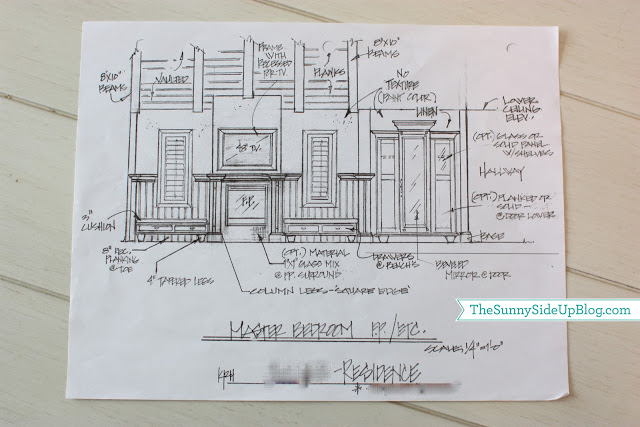 8"x10"
BEAMS
VAULTED
FRAME
WITH
RECESSED
FOR TV.
PLANKS
8"x10"
BEAMS
NO
TEXTURE
(PAINT COLOR)
LINEN
LOWER
CEILING
ELEV.
(OPT.) GLASS OR
SOLID PANEL
W/SHELVES
HALLWAY
(OPT.) PLANKED OR
SOLID-
@DOOR LOWER
BASE
T.V.
F.P.
3"
CUSHION
PLANKING
@TOE
4" TAPERED LEGS
(OPT.) MATERIAL
1"x1" GLASS MIX
@F.P. SURROUND
DRAWERS
@BENCH'S
BEVELED
MIRROR@DOOR
COLUMN LEGS-'SQUARE EDGE'
MASTER BEDROOM F.P./ETC.
SCALE: 1/4"=1'0"
KRH
-RESIDENCE
TheSunnySideUpBlog.com